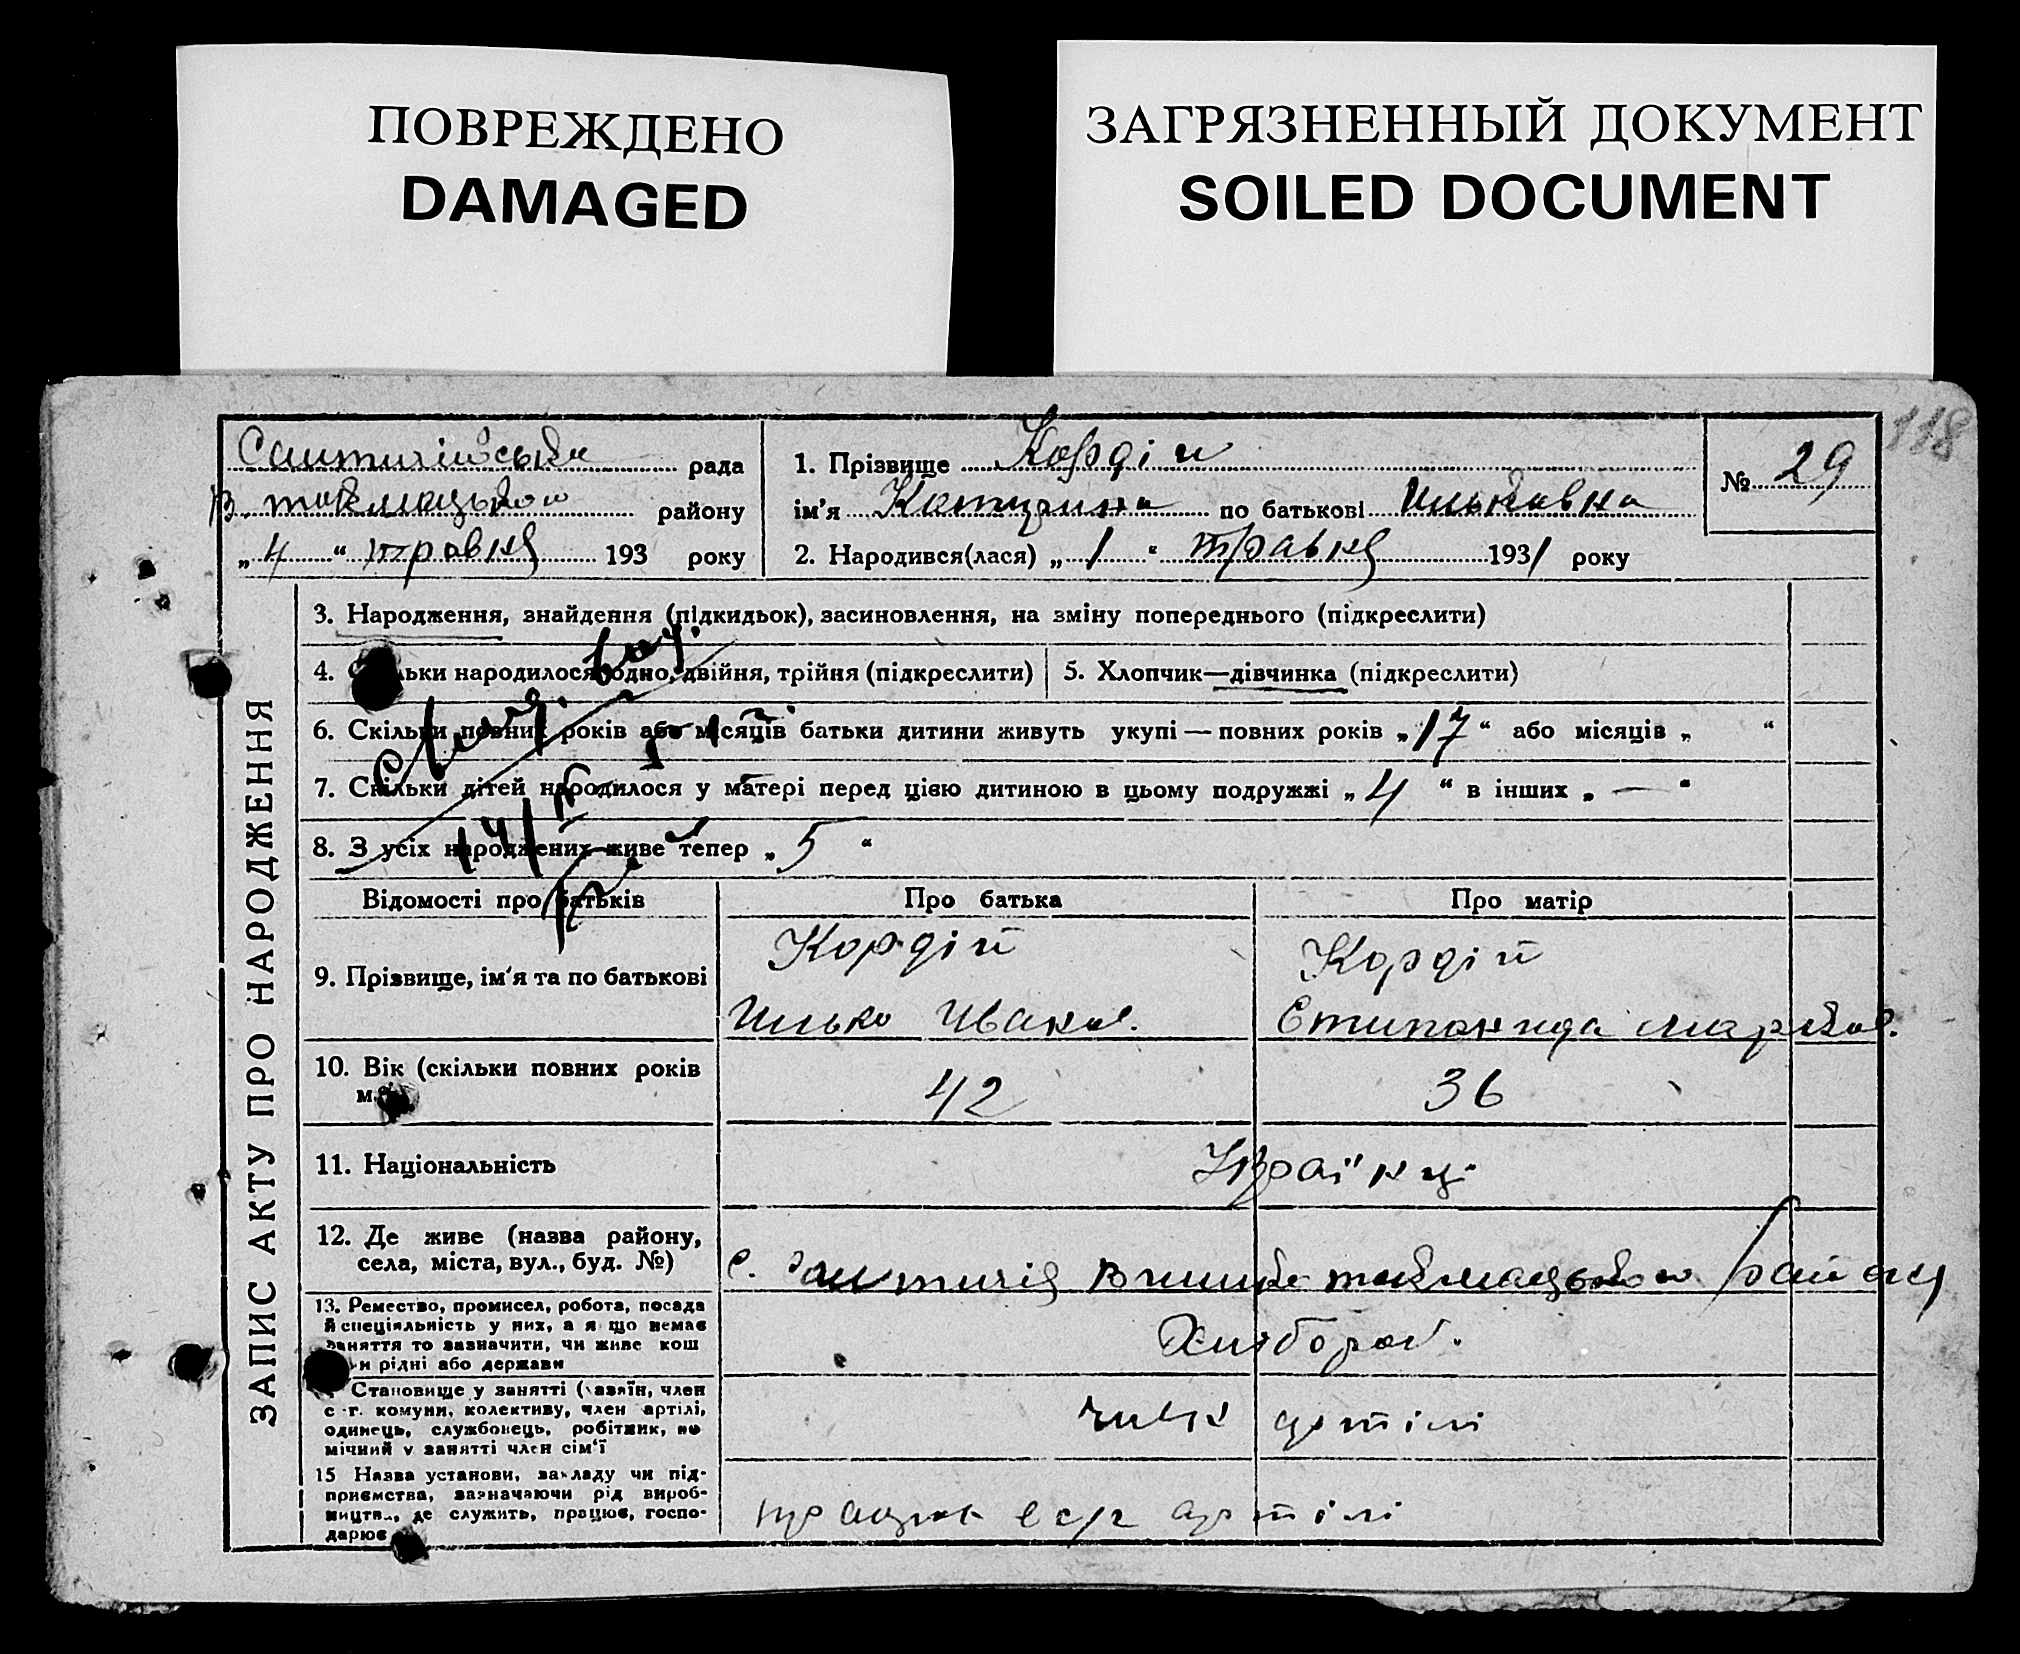 ПОВРЕЖДЕНО
DAMAGED
ЗАГРЯЗНЕННЫЙ ДОКУМЕНТ
SOILED DOCUMENT
118
рада
В. токмацького району
„4“ травня 193 року
1. Прізвище Кордій
ім'я Катерина по батькові Ильківна
2. Народився(лася) „1“ травня 1931 року
№ 29
ЗАПИС АКТУ ПРО НАРОДЖЕННЯ
3. Народження, знайдення (підкидьок), засиновлення, на зміну попереднього (підкреслити)
4. Скільки народилося одно, двійня, трійня (підкреслити)
5. Хлопчик—дівчинка (підкреслити)
6. Скільки повних років або місяців батьки дитини живуть укупі — повних років „17“ або місяців „ “
7. Скільки дітей народилося у матері перед цією дитиною в цьому подружжі „4“ в інших „—“
8. З усіх народжених живе тепер „5“
Відомості про батьків
Про батька
Про матір
9. Прізвище, ім'я та по батькові
Кордій
Илько Иванов.
Кордій
Степанида Марков.
10. Вік (скільки повних років
42
36
11. Національність
Українці
12. Де живе (назва району,
села, міста, вул., буд. №)
с. токмацького району
13. Ремество, промисел, робота, посада
й спеціяльність у них, а якщо немає
заняття то зазначити, чи живе кош
рідні або держави
Хлібороб.
Становище у занятті (хазяїн, член
с.-г. комуни, колективу, член артілі,
одинець, службонець, робітник, по
мічний у занятті член сім'ї
член артілі
15 Назва установи, закладу чи під-
приємства, зазначаючи рід вироб-
ництв., де служить, працює, госпо-
дарює
працює в с/г артілі